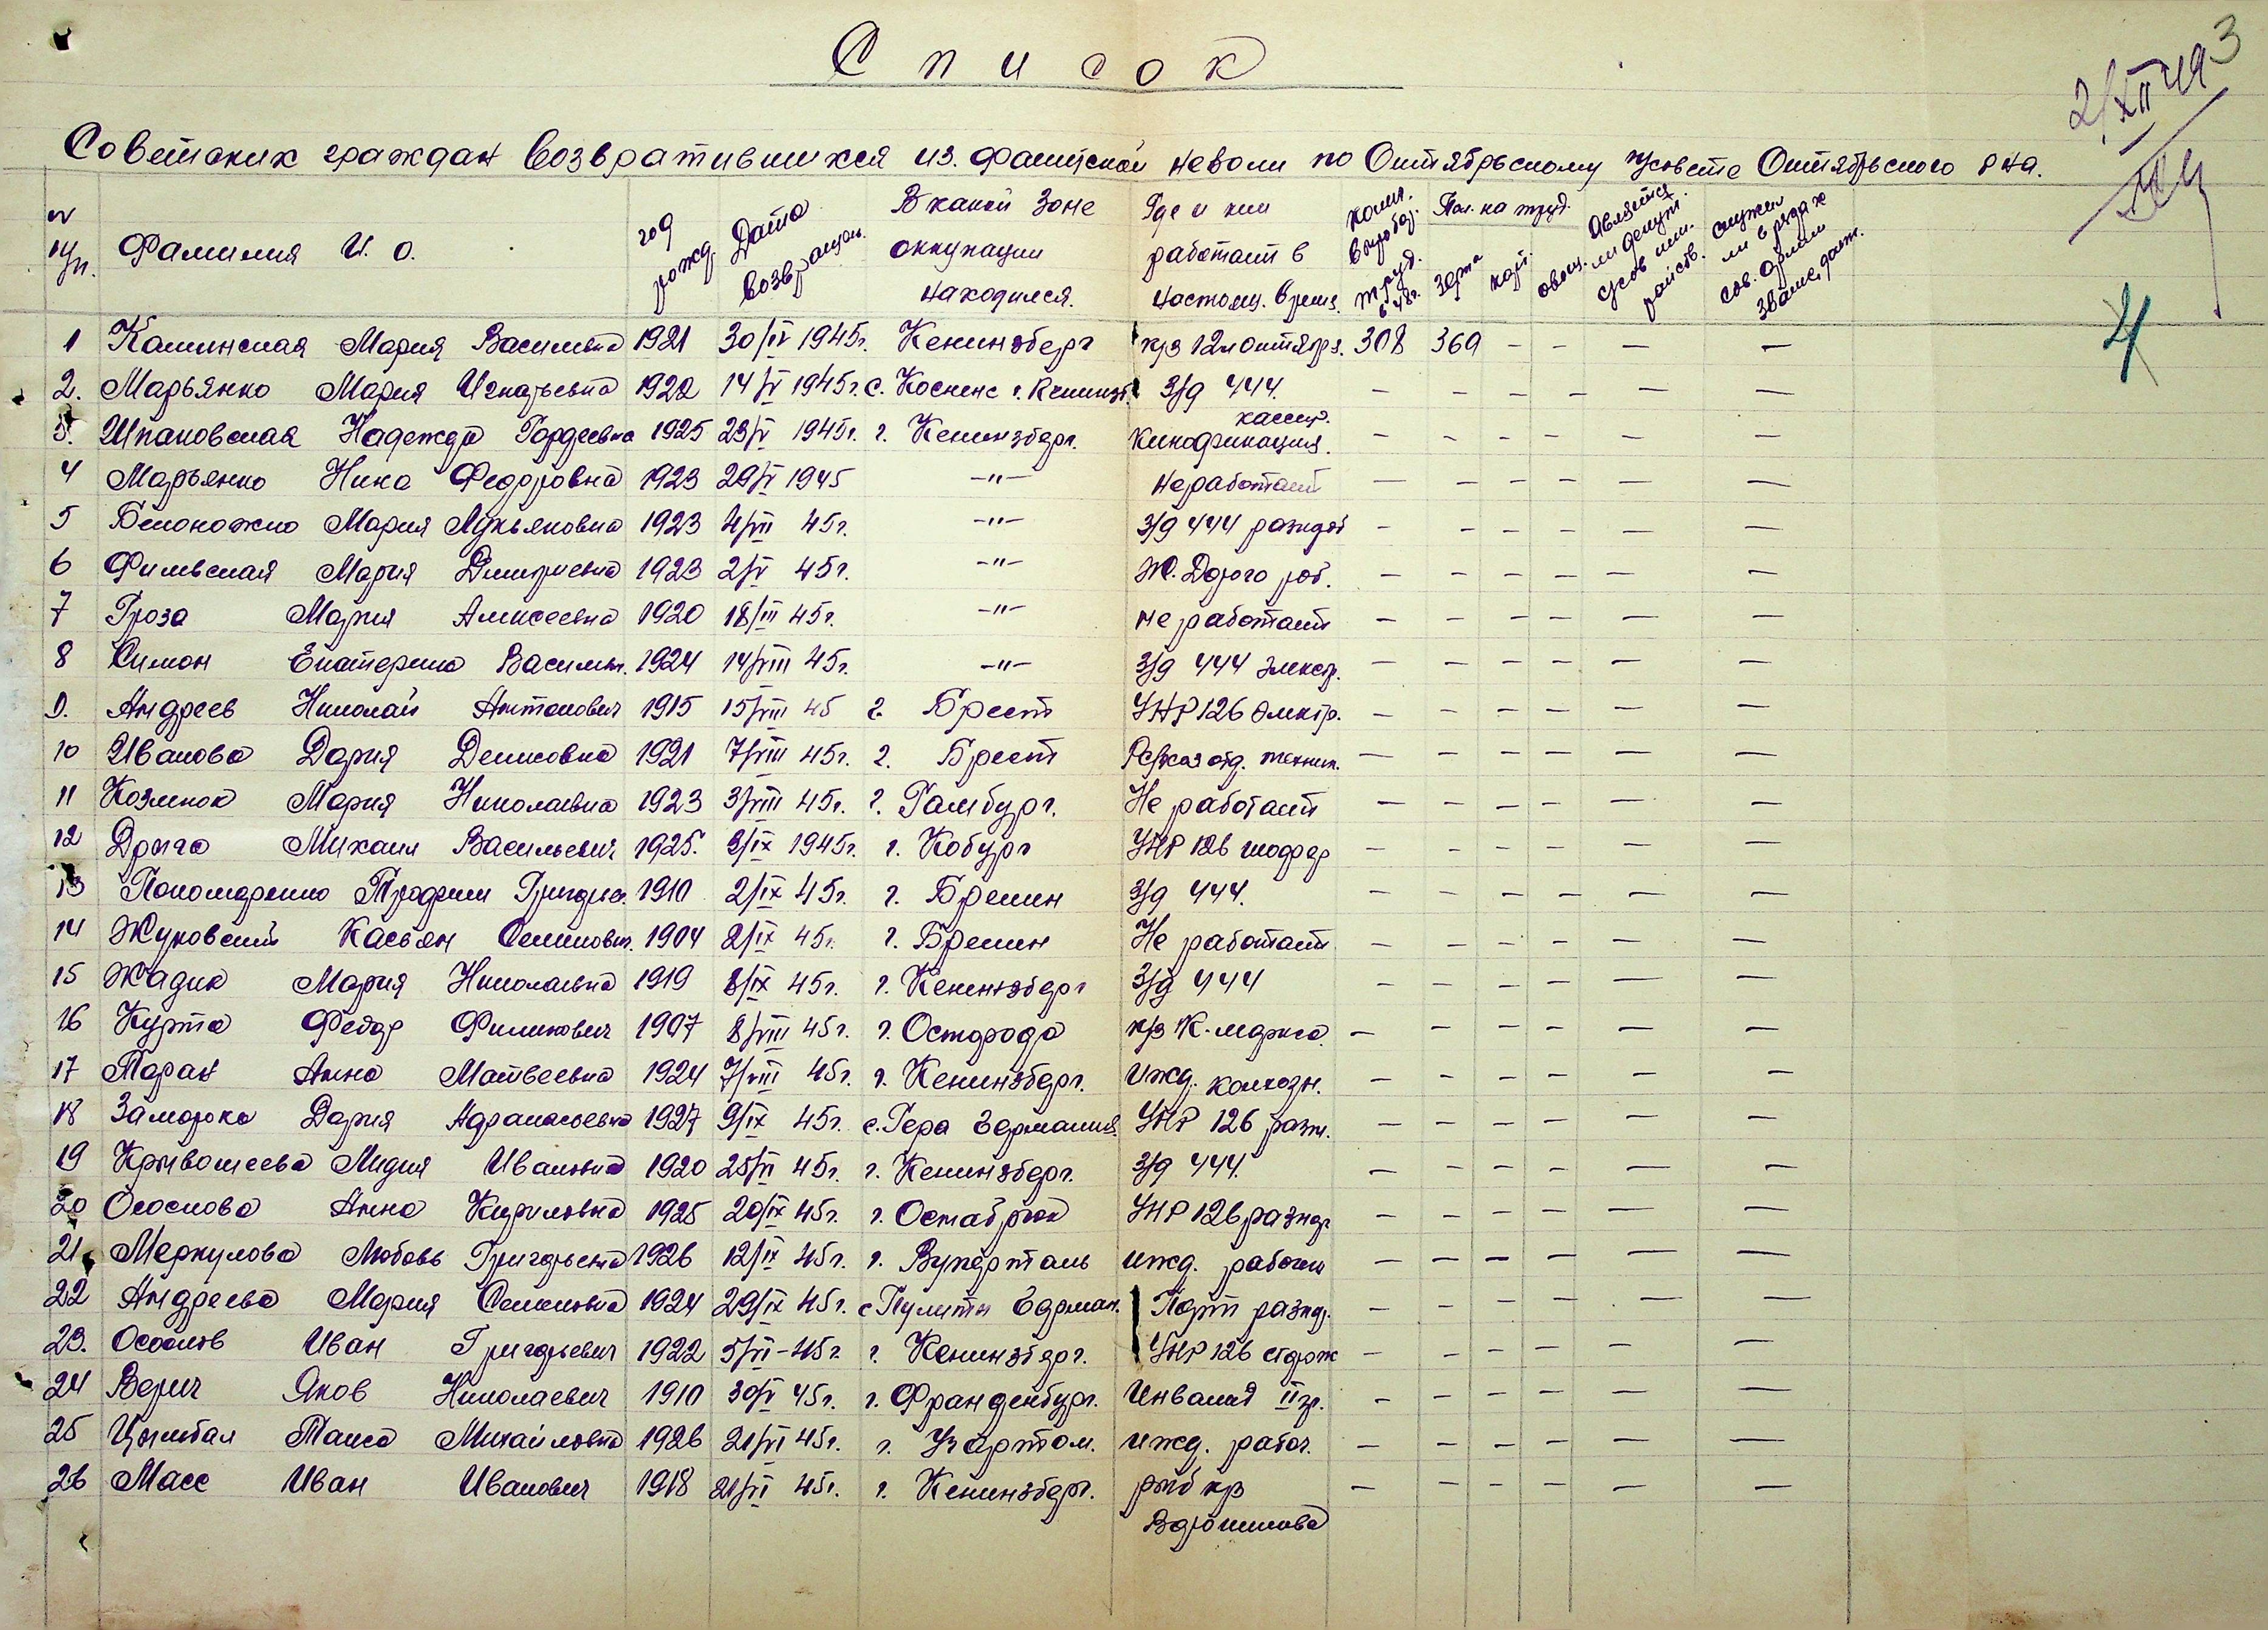 Список
3
2/XII 49
4
Советских граждан возвратившихся из фашисской неволи по Октябрьскому г/совете Октябрьского р на.
№ п/п. Фамилия И. О. год рожд. Дата возвращен. В какой зоне оккупации находился. Где и кем работает в настоящ. время. колич. вырабод. труд. в 48г. Пол. на труд. зерна карт. овощ. Является ли депут. райсов. служил ли в рядах сов. армии звание, долж.
1 Каминская Мария Васильевна 1921 30/IV 1945г. Кенинзберг к/з 12л октября. 308 369 - - - -
2. Марьянко Мария Игнатьевна 1922 14/V 1945г. с. Коспенс г. Кенинзб. З/д 444. - - - - - -
3. Шпаковская Надежда Гордеевна 1925 23/V 1945г. г. Кенинзберг. Кинофикация. кассир. - - - - - -
4 Марьянко Нина Федоровна 1923 29/V 1945 -"- не работает - - - - - -
5 Белоножко Мария Лукьяновна 1923 4/VII 45г. -"- З/д 444 разнораб - - - - - -
6 Фильвская Мария Дмитриевна 1923 2/V 45г. -"- Ж. Дорога раб. - - - - - -
7 Гроза Мария Алексеевна 1920 18/III 45г. -"- не работает - - - - - -
8 Симон Екатерина Васильев. 1924 14/VIII 45г. -"- З/д 444 электр. - - - - - -
9. Андреев Николай Антонович 1915 15/VIII 45 г. Брест УНР 126 электр. - - - - - -
10 Иванова Дария Денисовна 1921 7/VIII 45г. г. Брест отд. технич. - - - - - -
11 Козленок Мария Николаевна 1923 3/VIII 45г. г. Гамбург. Не работает - - - - - -
12 Дрыга Михаил Васильевич 1925. 2/IX 1945г. г. Кобург УНР 126 шофер - - - - - -
13 Пономаренко Трофим Григорьев. 1910 2/IX 45г. г. Бремин З/д 444. - - - - - -
14 Жуковский Касьян Семенович. 1904 2/IX 45г. г. Бремин Не работает - - - - - -
15 Жадик Мария Николаевна 1919 8/IX 45г. г. Кенинзберг З/д 444 - - - - - -
16 Курта Федор Филипович 1907 8/VIII 45г. г. Остарода к/з К. маркса. - - - - - -
17 Таран Анна Матвеевна 1924 7/VIII 45г. г. Кенинзберг. ижд. колхозн. - - - - - -
18 Заморока Дария Афанасьевна 1927 9/IX 45г. с. Гера Германия УНР 126 разн. - - - - - -
19 Кривошеева Лидия Ивановна 1920 25/VI 45г. г. Кенинзберг. З/д 444. - - - - - -
20 Ососкова Анна Кириловна 1925 20/IX 45г. г. Оснабрюк УНР 126 разнор - - - - - -
21 Меркулова Любовь Григорьевна 1926 12/IX 45г. г. Вуперталь ижд. рабочи - - - - - -
22 Андреева Мария Семеновна 1924 29/IX 45г. с Герман. Порт разнор. - - - - - -
23. Ососков Иван Григорьевич 1922 5/VI-45г. г. Кенинзберг. УНР 126 сторож - - - - - -
24 Верич Яков Николаевич 1910 30/V 45г. г. Франденбург. Инвалид II гр. - - - - - -
25 Цымбал Таиса Михайловна 1926 21/VI 45г. г. ижд. рабоч. - - - - - -
26 Масс Иван Иванович 1918 21/VI 45г. г. Кенинзберг. рыб к/з - - - - - -
Ворошилова